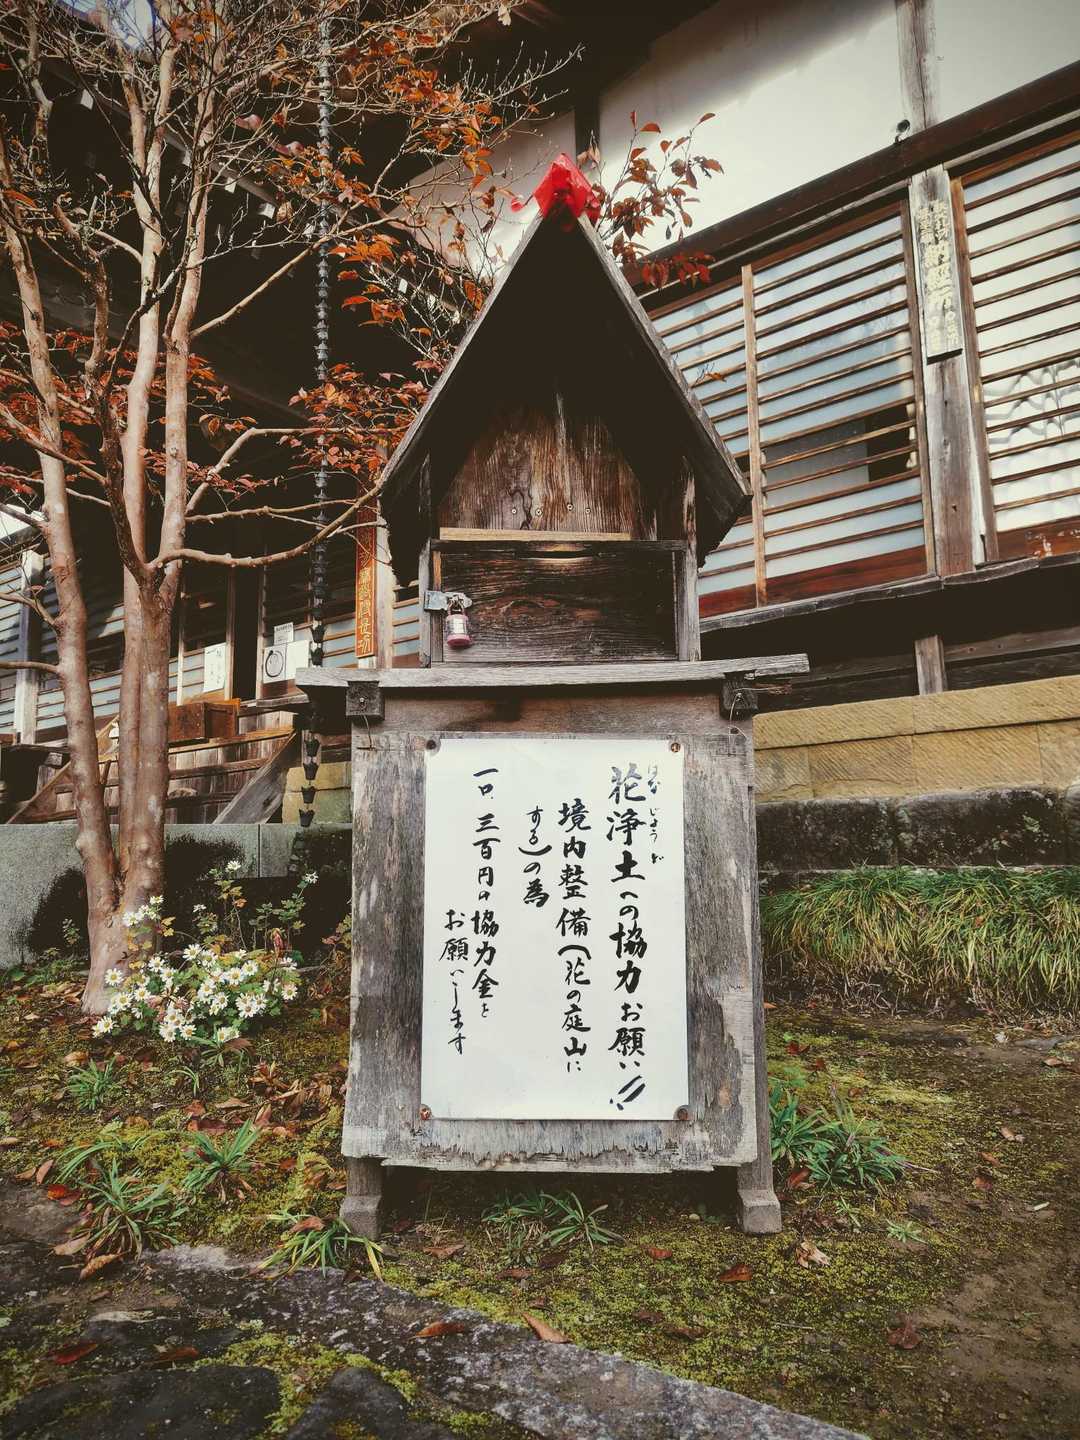 花浄土への協力お願い!!
はな じょう ど
境内整備(花の庭山に
する)の為
一口、三百円の協力金を
お願いします